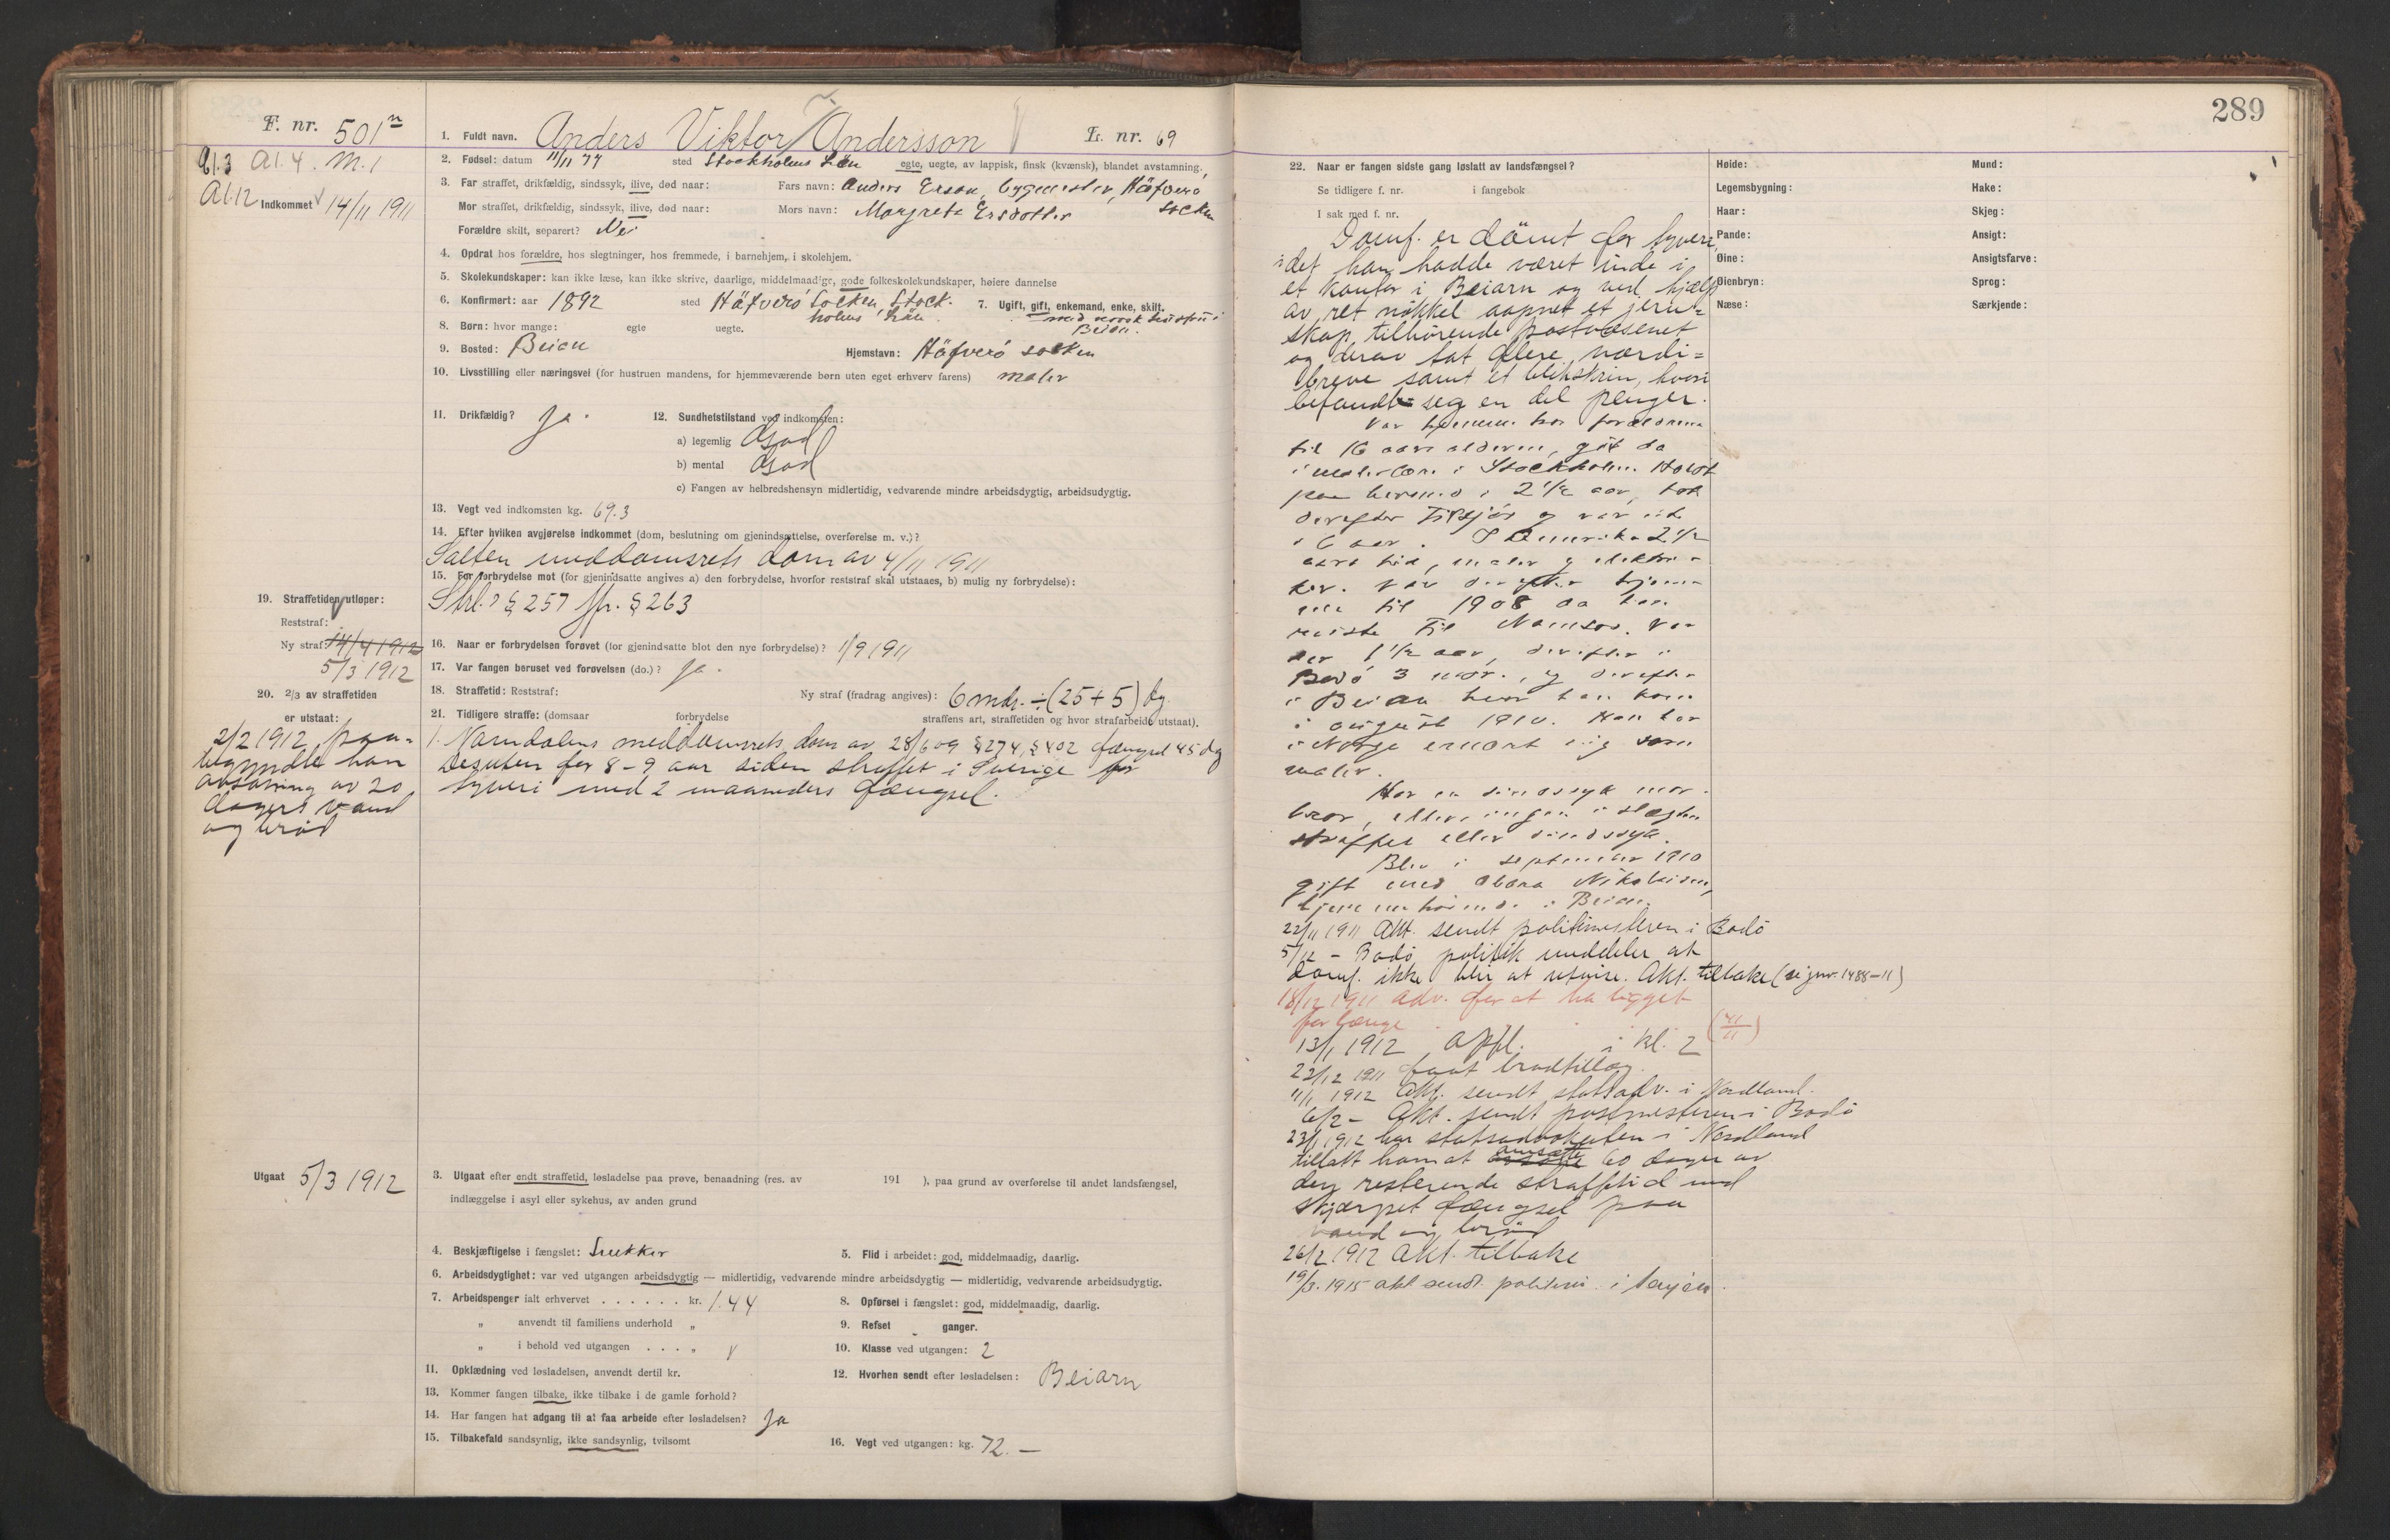 289
F. nr. 501 n
Al.3 Al.4. M.1
Al.12 Indkommet 14/11 1911
1. Fuldt navn. Anders Viktor Andersson L. nr. 69
2. Fødsel: datum 11/11 77 sted Stockholms Län egte, uegte, av lappisk, finsk (kvænsk), blandet avstamning.
3. Far straffet, drikfældig, sindssyk, ilive, død naar: Fars navn: Anders Erson, bygmester, Häfverö
Mor straffet, drikfældig, sindssyk, ilive, død naar: Mors navn: Margreta Ersdotter socken
Forældre skilt, separert? Nei
4. Opdrat hos forældre, hos slegtninger, hos fremmede, i barnehjem, i skolehjem.
5. Skolekundskaper: kan ikke læse, kan ikke skrive, daarlige, middelmaadige, gode folkeskolekundskaper, høiere dannelse
6. Konfirmert: aar 1892 sted Häfverö Socken Stock-
holms Län
7. Ugift, gift, enkemand, enke, skilt.
med norsk hustru i
Beiern
8. Børn: hvor mange: egte uegte.
9. Bosted: Beiern Hjemstavn: Häfverö socken
10. Livsstilling eller næringsvei (for hustruen mandens, for hjemmeværende børn uten eget erhverv farens) maler
11. Drikfældig? Ja.
12. Sundhetstilstand ved indkomsten:
a) legemlig God
b) mental God
c) Fangen av helbredshensyn midlertidig, vedvarende mindre arbeidsdygtig, arbeidsudygtig.
13. Vegt ved indkomsten kg. 69.3
14. Efter hvilken avgjørelse indkommet (dom, beslutning om gjenindsættelse, overførelse m. v.)?
Salten meddomsrets dom av 4/11 1911
15. For forbrydelse mot (for gjenindsatte angives a) den forbrydelse, hvorfor reststraf skal utstaaes, b) mulig ny forbrydelse):
Strl.s § 257 jfr. § 263
19. Straffetiden utløper:
Reststraf:
Ny straf: 14/4 1912
5/3 1912
16. Naar er forbrydelsen forøvet (for gjenindsatte blot den nye forbrydelse)? 1/9 1911
17. Var fangen beruset ved forøvelsen (do.)? Ja.
18. Straffetid: Reststraf: Ny straf (fradrag angives): 6 mdr. ÷ (25 + 5) dg.
20. 2/3 av straffetiden
er utstaat:
2/2 1912 paa-
begyndte han
avsoning av 20
dagers vand
og brød
21. Tidligere straffe: (domsaar forbrydelse straffens art, straffetiden og hvor strafarbeide utstaat).
1. Namdalens meddomsrets dom av 28/6 09 § 274, § 402 fængsel 45 dg
Desuten for 8-9 aar siden straffet i Sverige for
tyveri med 2 maaneders fængsel.
Utgaat 5/3 1912
3. Utgaat efter endt straffetid, løsladelse paa prøve, benaadning (res. av 191 ), paa grund av overførelse til andet landsfængsel,
indlæggelse i asyl eller sykehus, av anden grund
4. Beskjæftigelse i fængslet: Snekker
5. Flid i arbeidet: god, middelmaadig, daarlig.
6. Arbeidsdygtighet: var ved utgangen arbeidsdygtig — midlertidig, vedvarende mindre arbeidsdygtig — midlertidig, vedvarende arbeidsudygtig.
7. Arbeidspenger ialt erhvervet . . . . . . kr. 1.44
8. Opførsel i fængslet: god, middelmaadig, daarlig.
„ anvendt til familiens underhold „
9. Refset ganger.
„ i behold ved utgangen . . . „
10. Klasse ved utgangen: 2
11. Opklædning ved løsladelsen, anvendt dertil kr.
12. Hvorhen sendt efter løsladelsen: Beiarn
13. Kommer fangen tilbake, ikke tilbake i de gamle forhold?
14. Har fangen hat adgang til at faa arbeide efter løsladelsen? Ja
15. Tilbakefald sandsynlig, ikke sandsynlig, tvilsomt
16. Vegt ved utgangen: kg. 72.—
22. Naar er fangen sidste gang løslatt av landsfængsel?
Se tidligere f. nr. i fangebok
I sak med f. nr.
Høide:
Legemsbygning:
Haar:
Pande:
Øine:
Øienbryn:
Næse:
Mund:
Hake:
Skjeg:
Ansigt:
Ansigtsfarve:
Sprog:
Særkjende:
Domf. er dömt for tyveri,
idet han hadde været inde i
et kontor i Beiarn og ved hjælp
av ret nökkel aapnet et jern-
skap, tilhörende postvæsenet
og derav tat flere værdi=
breve samt et blikskrin, hvori
befandt seg en del penger.
Var hjemme hos forældrene
til 16 aars alderen, gik da
i malerlære i Stockholm. Holdt
paa hermed i 2 1/2 aar, tok
derefter tilsjös og var ute
i 6 aar. I Amerika 2 1/2
aars tid, maler og
Var derefter hjem-
me til 1908 da han
reiste til Namsos. Var
der 1 1/2 aar, derefter i
Bodö 3 mdr., og derefter
i Beiarn hvor han kom
i august 1910. Han har
i Norge ernært sig som
maler.
Har en sindssyk mor-
bror, ellers ingen i slægten
straffet eller sindssyk.
Blev i september 1910
gift med Nikolaisen,
hjemmehörende i Beiern.
22/11 1911 Akt. sendt politimesteren i Bodö
5/12 - Bodö politik. meddeler at
domf. ikke blir at utvise. Akt. tilbake (se jnr. 1488-11)
18/12 1911 adv. for at ha ligget
for længe (41/11)
13/1 1912 Opfl. i kl. 2
23/12 1911 faat brödtillæg.
11/1 1912 Akt. sendt statsadv. i Nordland.
6/2 - Akt. sendt postmesteren i Bodö
23/1 1912 har statsadvokaten i Nordland
tillatt ham at omsætte 60 dager av
den resterende straffetid med
skjærpet fængsel paa
vand og bröd
26/2 1912 Akt. tilbake
19/3. 1915 akt sendt politim. i